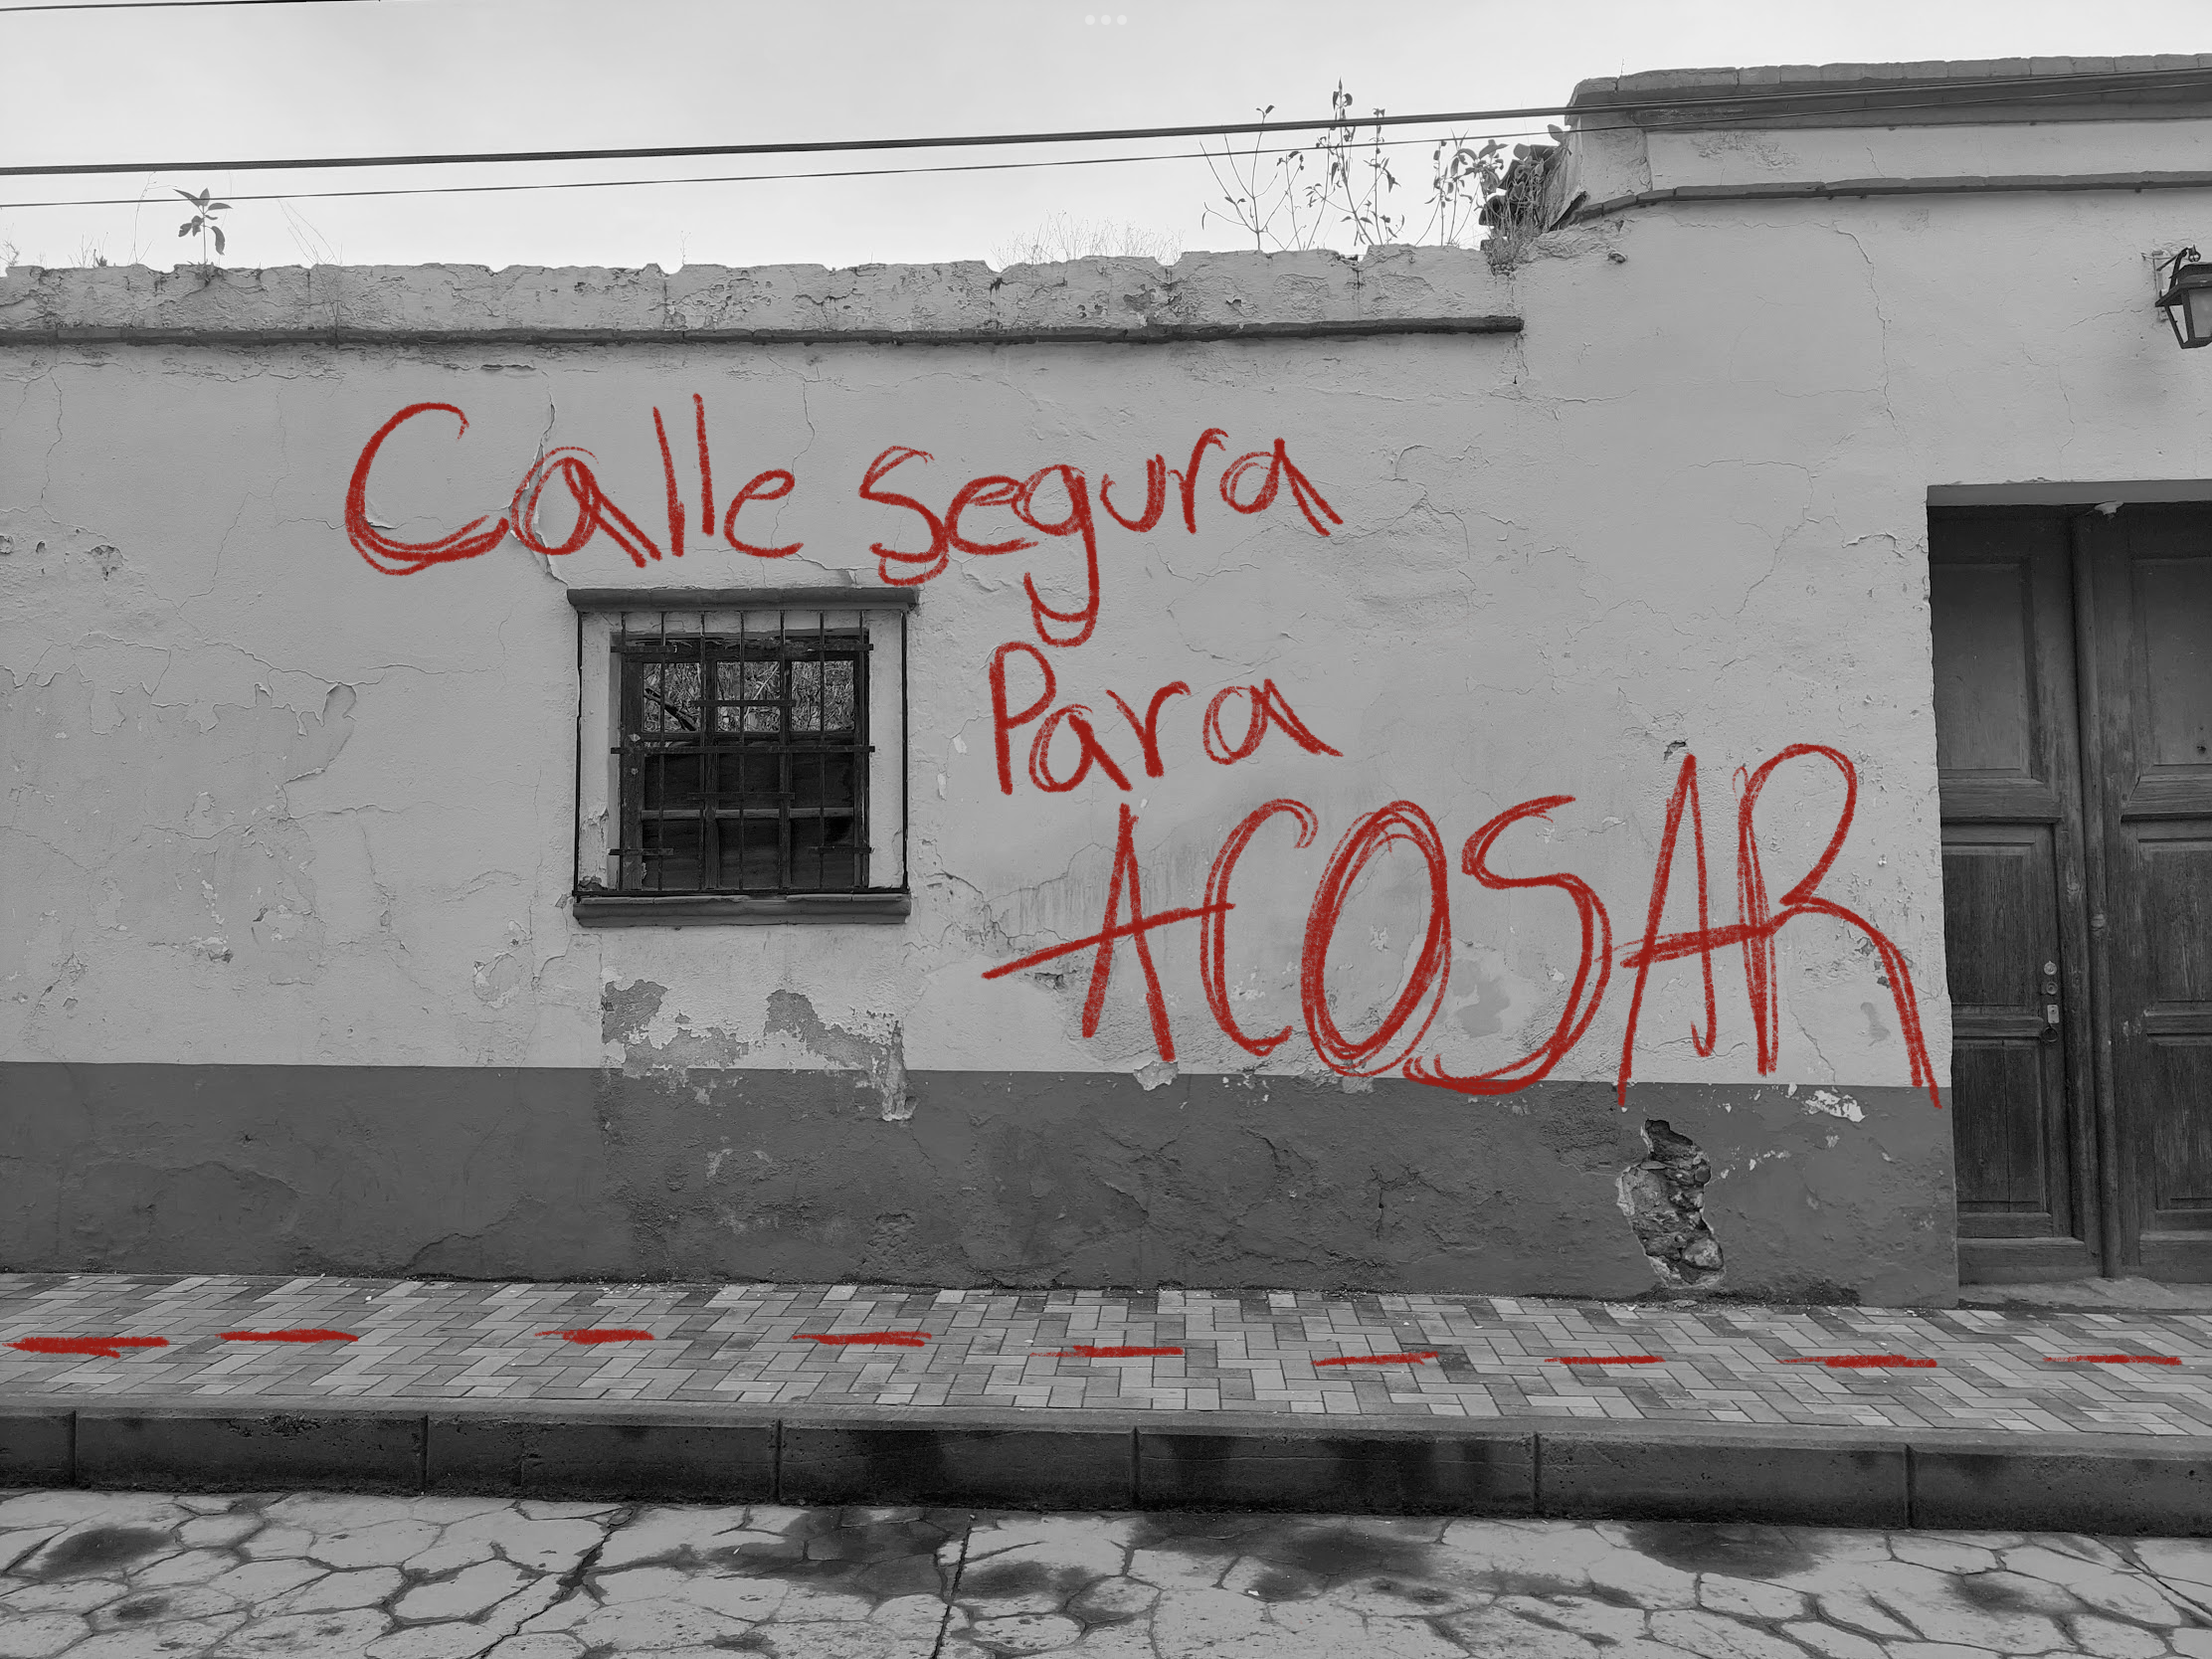 Calle segura
Para
ACOSAR